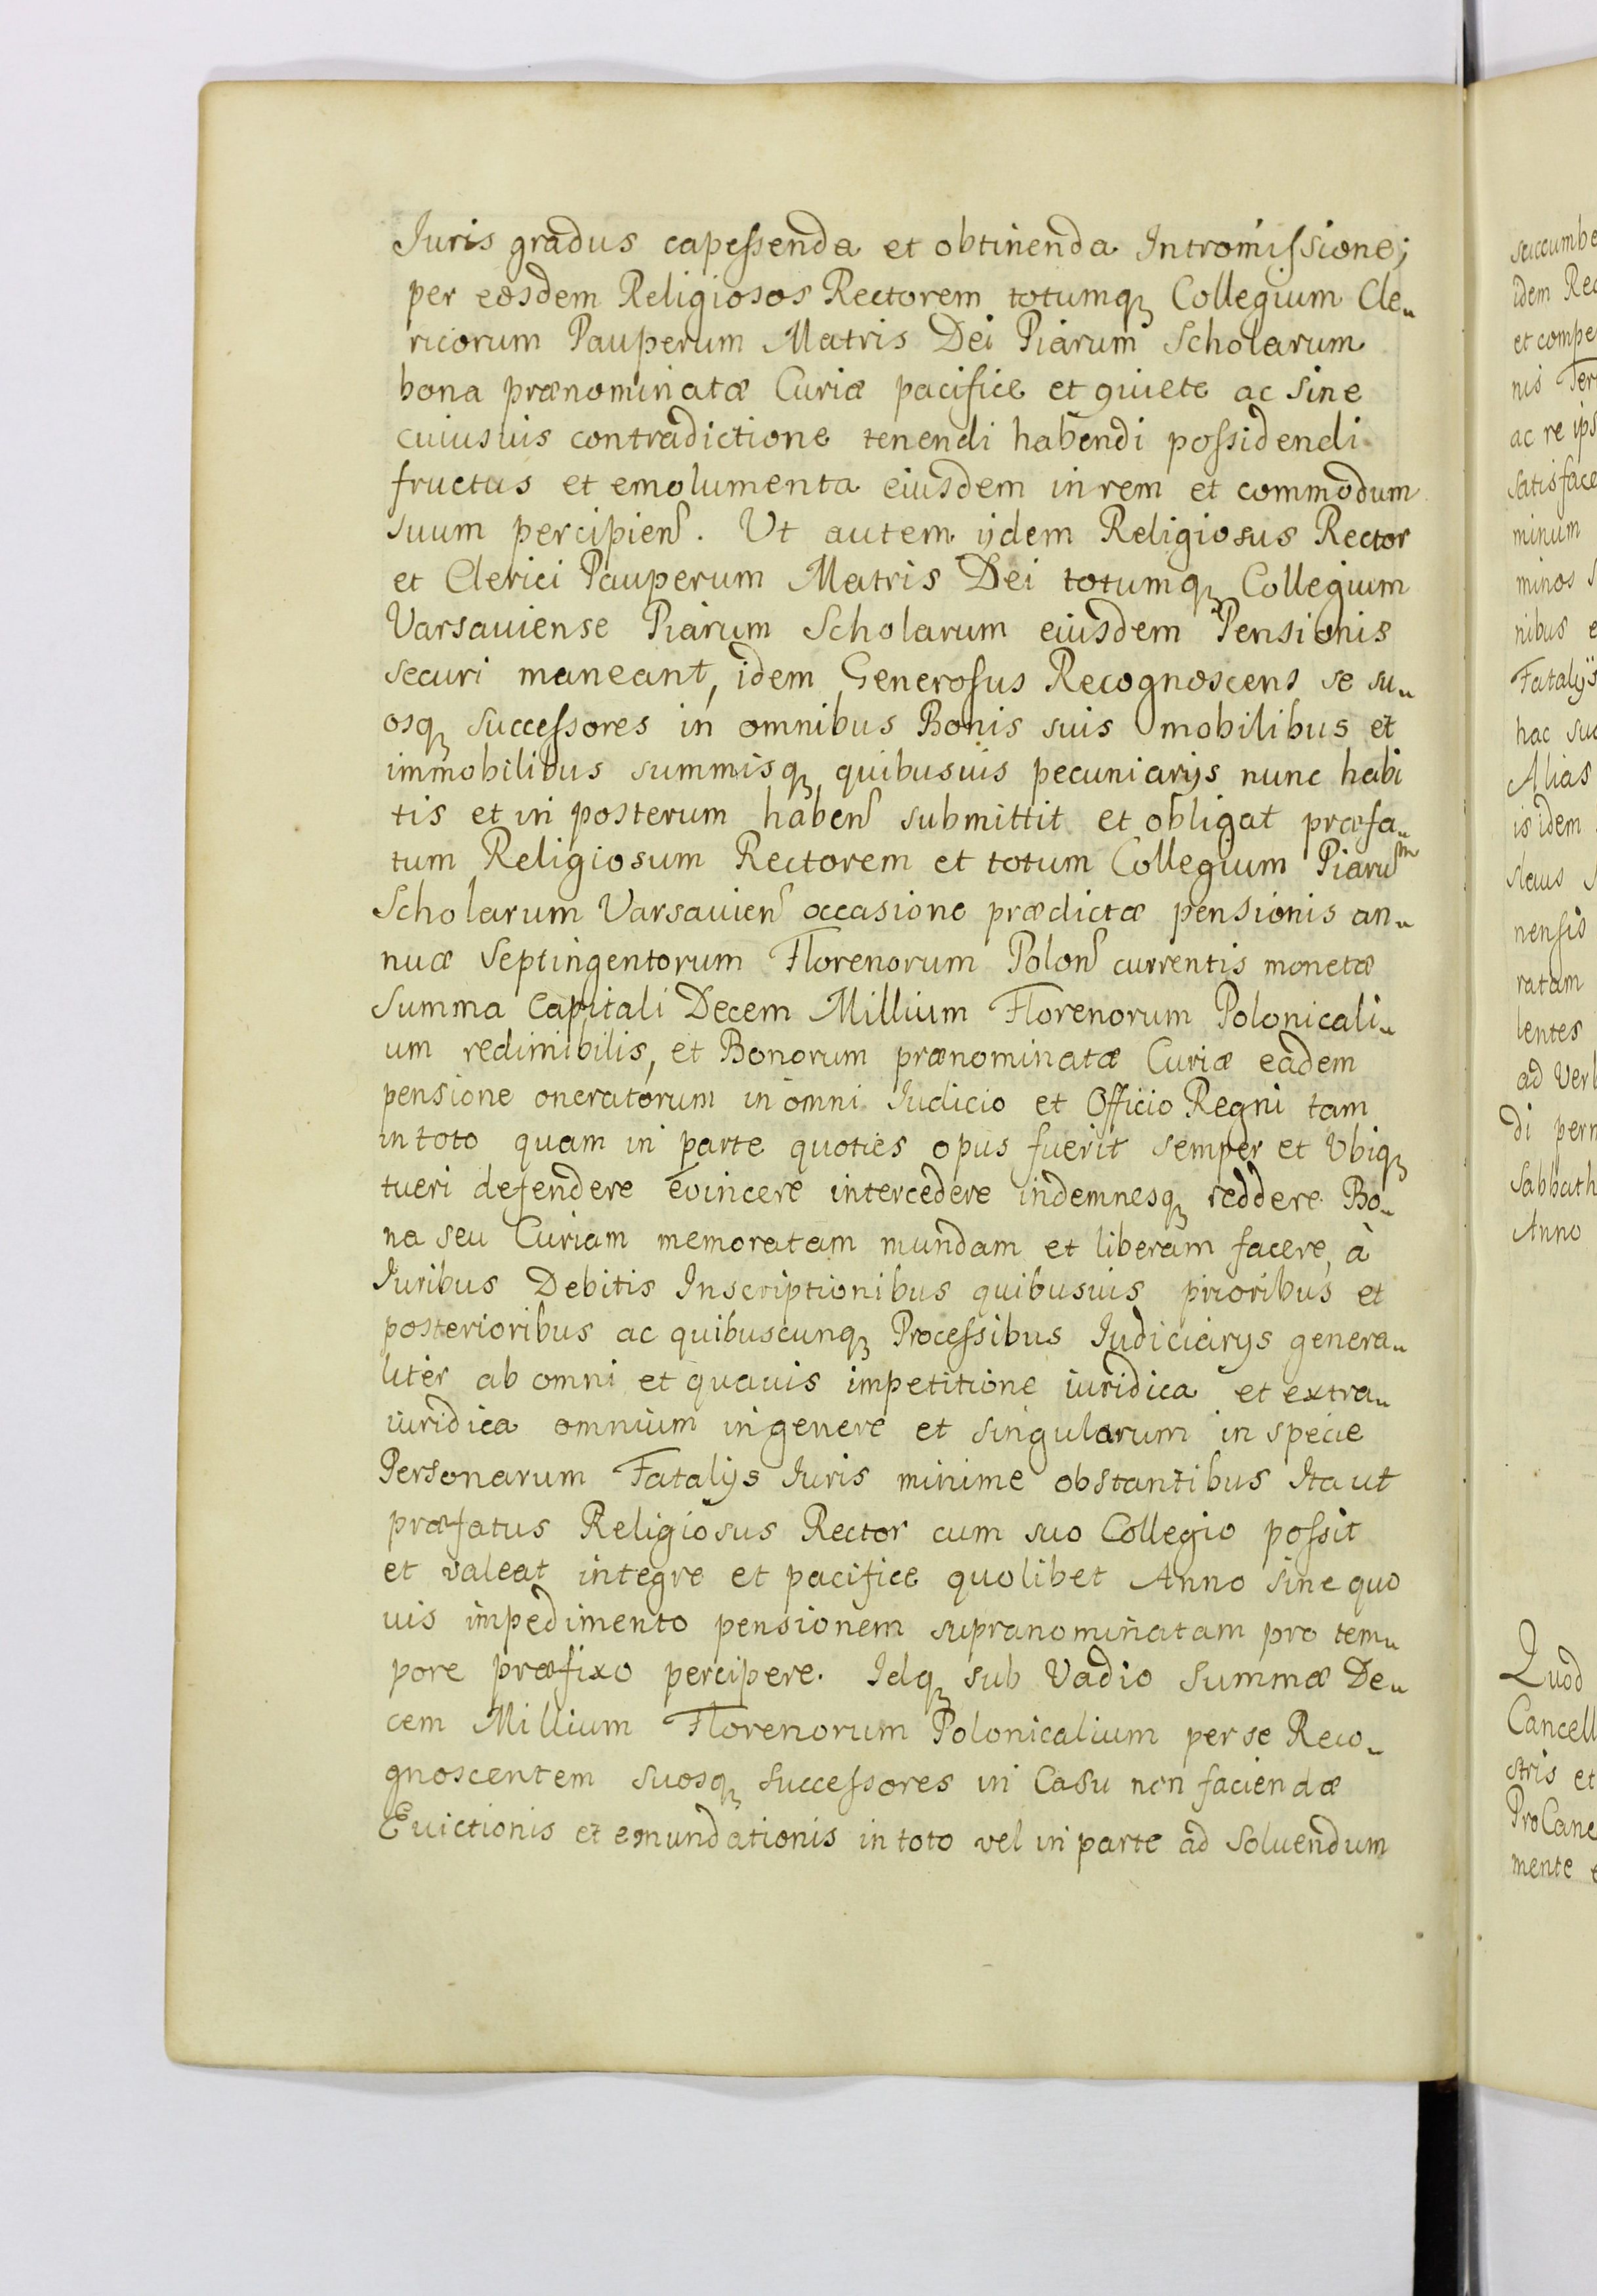 Iuris gradus capessenda et obtinenda Intromissione;
per eosdem Religiosos Rectorem totumqꝫ Collegium Cle„
ricorum Pauperum Matris Dei Piarum Scholarum
bona prænominatæ Curiæ pacifice et quiete ac sine
cuiusuis contradictione tenendi habendi possidendi
fructus et emolumenta eiusdem in rem et commodum
suum percipien. Ut autem ijdem Religiosus Rector
et Clerici Pauperum Matris Dei totumqꝫ Collegium
Varsauiense Piarum Scholarum eiusdem Pensionis
securi maneant, idem Generosus Recognoscens se su„
osqꝫ successores in omnibus Bonis suis mobilibus et
immobilibus summisqꝫ quibusuis pecuniarijs nunc habi
tis et in posterum haben submittit et obligat præfa„
tum Religiosum Rectorem et totum Collegium Piarum
Scholarum Varsauien occasione prædictæ pensionis an„
nuæ Septingentorum Florenorum Polon currentis monetæ
Summa Capitali Decem Millium Florenorum Polonicali„
um redimibilis, et Bonorum prænominatæ Curiæ eadem
pensione oneratorum in omni Iudicio et Officio Regni tam
in toto quam in parte quoties opus fuerit semper et Ubiqꝫ
tueri defendere evincere intercedere indemnesqꝫ reddere Bo„
na seu Curiam memoratam mundam et liberam facere, à
Iuribus Debitis Inscriptionibus quibusuis prioribus et
posterioribus ac quibuscunqꝫ Processibus Iudiciarijs genera„
liter ab omni et quauis impetitione iuridica et extra„
iuridica omnium in genere et singularum in specie
Personarum Fatalijs Iuris minime obstantibus Ita ut
præfatus Religiosus Rector cum suo Collegio possit
et valeat integre et pacifice quolibet Anno sine quo
uis impedimento pensionem supranominatam pro tem„
pore præfixo percipere. Idqꝫ sub Vadio Summæ De„
cem Millium Florenorum Polonicalium per se Reco„
gnoscentem suosqꝫ successores in Casu non faciendæ
Euictionis et emundationis in toto vel in parte ad Soluendum
succumbe
idem Rec
et compe
nis Ter
ac re ips
satisface
minum
minos s
nibus e
Fatalijs
hac suc
Alias
is idem
slaus
nensis
ratam
lentes
ad Verb
di perm
Sabbath
Anno
Quod
Cancell
stris et
ProCanc
mente